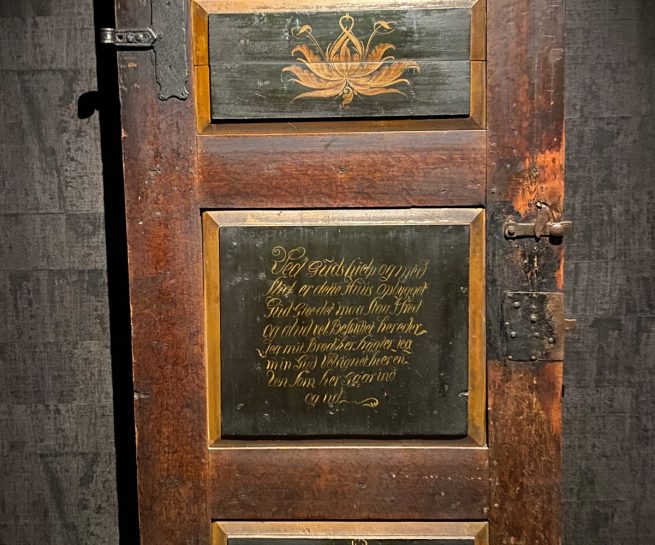 Ved Guds hielp og med
flid er dette Huus opbygget
Gud Give det maa Staa i fred
og altid vel Besiunet her eder
Jeg mit Brød her
min Gud Velsignet hver en
Den Som her gaar ind
og ud